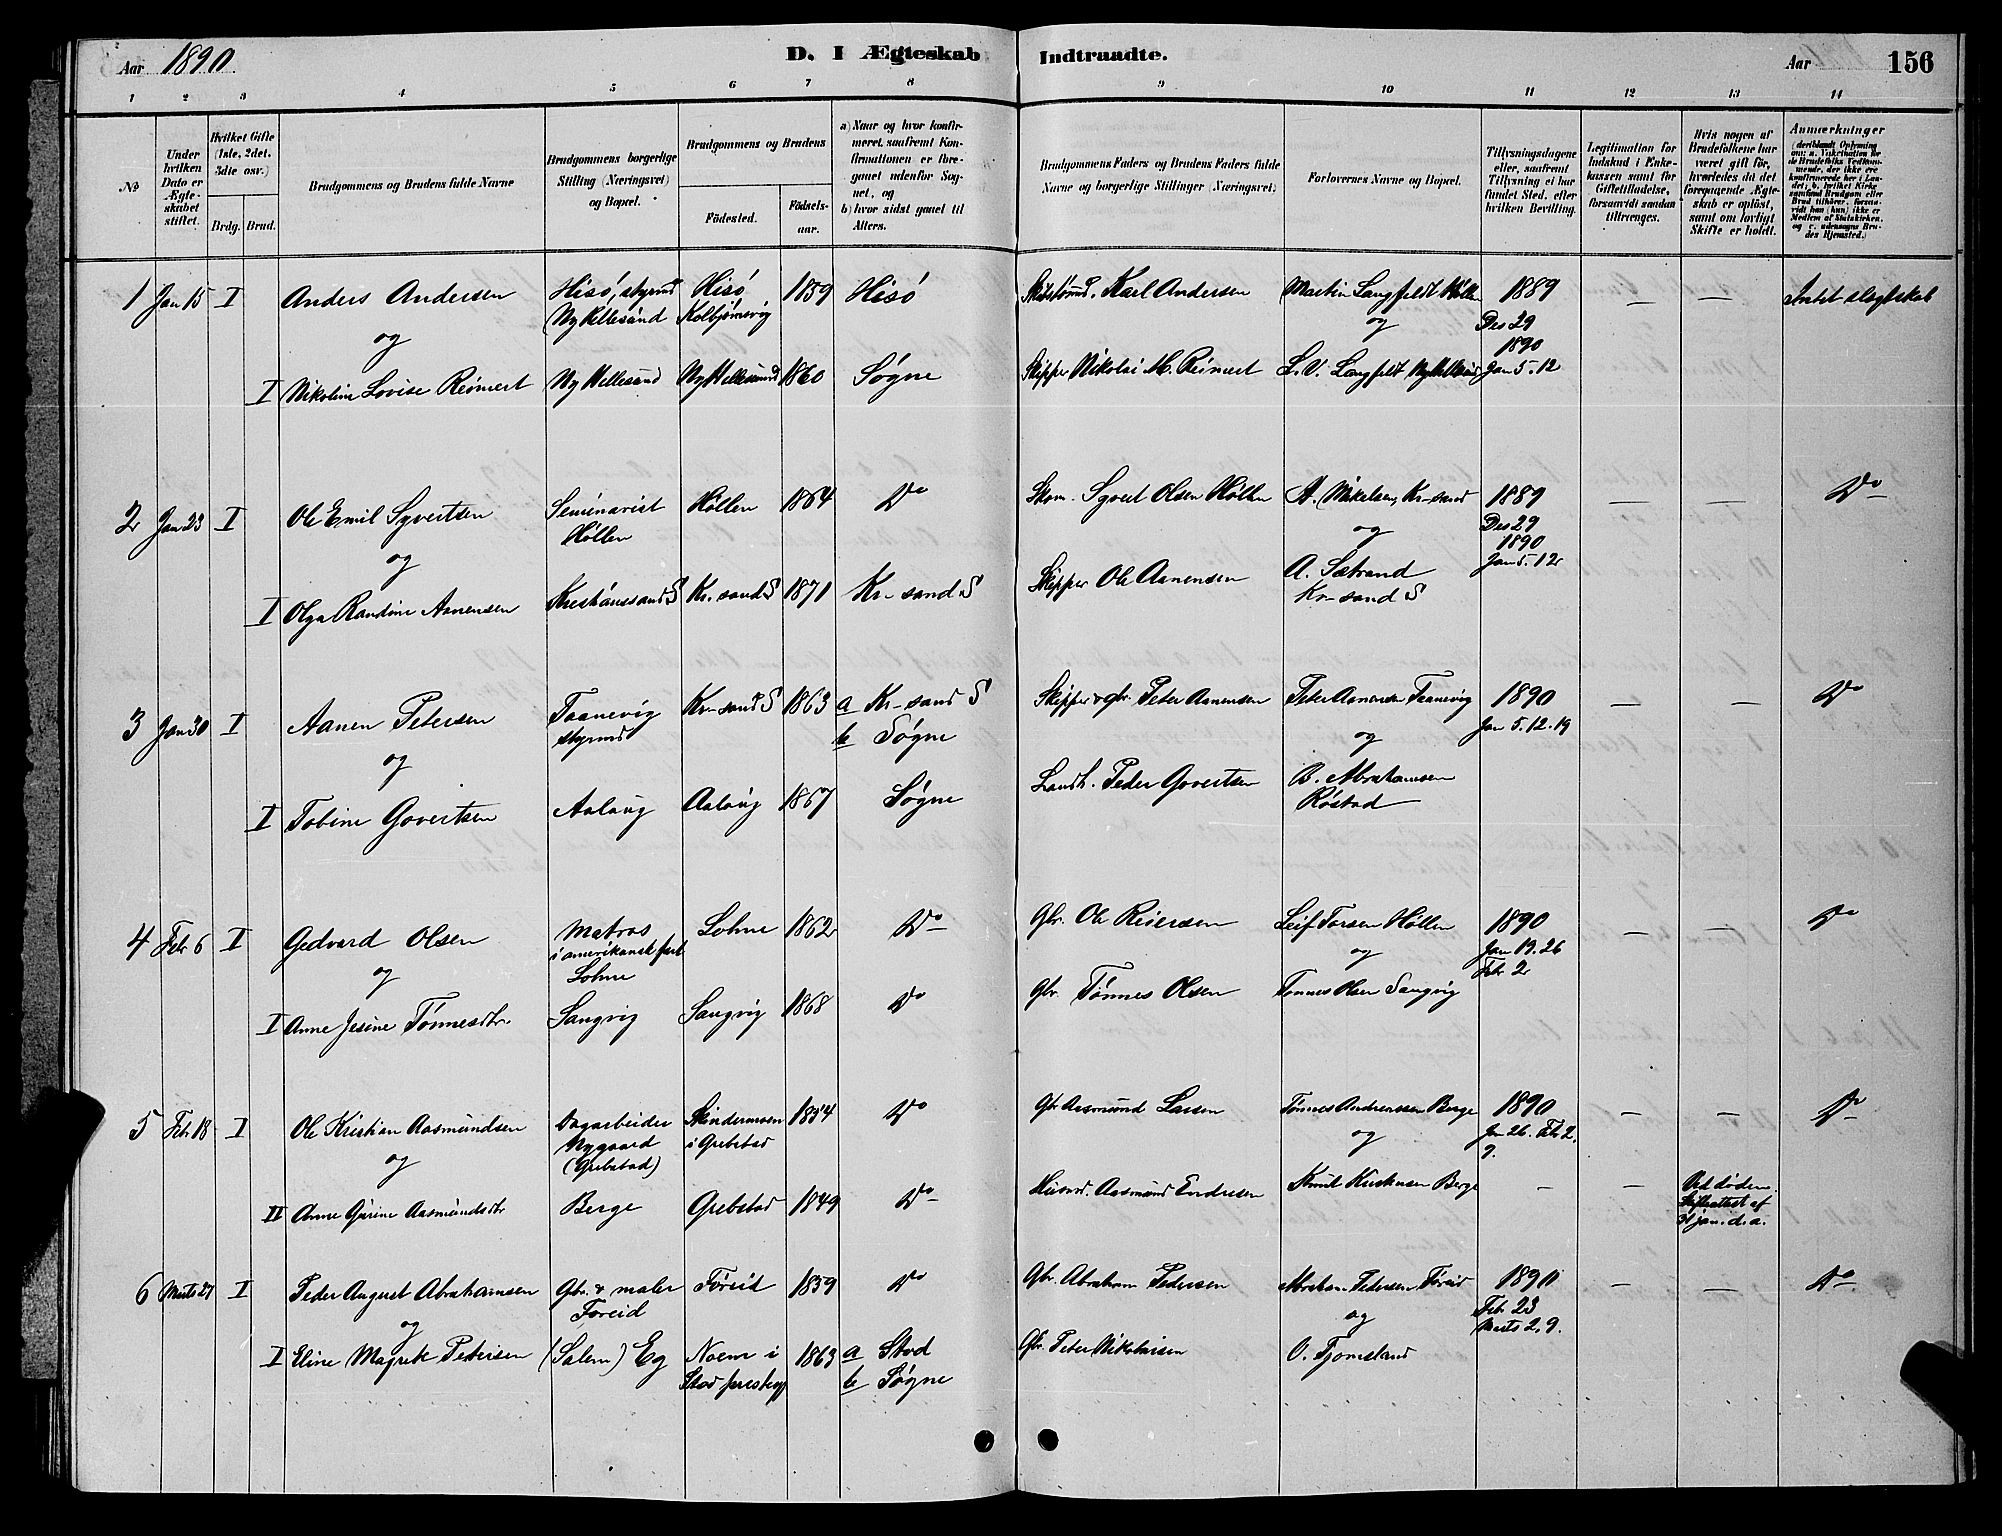 Aar 1890.
D. I Ægteskab Indtraadte.
Aar
156
1 2 3 4 5 6 7 8 9 10 11 12 13 14
No
Under hvilken Dato er Ægteskabet stiftet.
Hvilket Gifte (1ste, 2det, 3die osv.)
Brdg. Brud.
Brudgommens og Brudens fulde Navne
Brudgommens borgerlige Stilling (Næringsvei) og Bopæl.
Brudgommens og Brudens
Födested.
Födselsaar.
a) Naar og hvor konfirmeret, saafremt Konfirmationen er foregaaet udenfor Sognet, og
b) hvor sidst gaaet til Alters.
Brudgommens Faders og Brudens Faders fulde Navne og borgerlige Stillinger (Næringsvei)
Forlovernes Navne og Bopæl.
Tillysningsdagene eller, saafremt Tillysning ei har fundet Sted, efter hvilken Bevilling.
Legitimation for Indskud i Enkekassen samt for Giftetilladelse, forsaavidt saadan tiltrænges.
Hvis nogen af Brudefolkene har været gift för, hvorledes da det foregaaende Ægteskab er oplöst, samt om lovligt Skifte er holdt.
Anmærkninger
(deriblandt Oplysning om: a. Vakcination for de Brudefolks Vedkommende, der ikke ere konfirmerede her i Landet; b. hvilket Kirkesamfund Brudgom eller Brud tilhörer, forsaavidt han (hun) ikke er Medlem af Statskirken, og c. udensogns Brudes Hjemsted.)
1 Jan 15 I Anders Andersen Hisö, styrmd Ny Hellesund Hisö Kolbjørnsvig 1859 Hisö Karl Andersen Martin Langfeldt Höllen 1889 Des 29 — — Intet slegtskab
og og 1890
I Nikoline Lovise Reinert Ny Hellesund Ny Hellesund 1860 Søgne Skipper Nikolai M. Reinert L. V. Langfeldt Ny Hellesund Jan 5. 12
2 Jan 23 I Ole Emil Syvertsen Seminarist Höllen Höllen 1864 Do Skom. Syvert Olsen Höllen A. Mikelsen, Kr-sand 1889 Des 29 — — Do
og og 1890 Jan 5. 12
I Olga Randine Aanensen Kristianssand S Kr. sand S 1871 Kr-sand S Skipper Ole Aanensen A. Sætrand Kr-sand S
3 Jan 30 I Aanen Petersen Taanevig styrmd Kr-sand S 1863 a Kr-sand S b Søgne Skipper & gbr. Peter Aanensen Peter Aanensen Taanevig 1890 Jan 5. 12. 19 — — Do
og og
I Tobine Govertsen Aaløug Aaløug 1867 Søgne Landh. Peder Govertsen B. Abrahamsen Röstad
4 Feb 6 I Gedvard Olsen Matros i amerikansk fart Lohne Lohne 1862 Do Gbr. Ole Reiersen Leif Torsen Höllen 1890 Jan 19. 26 Feb 2 — — Do
og og
I Anne Jesine Tønnesdtr. Langvig Langvig 1868 Do Gbr. Tønnes Olsen Tønnes Olsen Langvig
5 Feb. 18 I Ole Kristian Aasmundsen Dagarbeider Nygaard (Grebstad) i Grebstad 1854 Do Gbr Aasmund Larsen Tønnes Andreassen Berge 1890 Jan 26. Feb 2. 9. — — Do
og og
II Anne Gurine Aasmundsdtr Berge Grebstad 1849 Do Husmd. Aasmund Endresen Knut Kristensen Berge — — Ved døden. Skifteattest af 31 jan. d. a.
6 Marts 27 I Peder August Abrahamsen Gbr. & maler Føreid Føreid 1859 Do Gbr. Abraham Pedersen Abraham Pedersen Føreid 1890 Feb 23 Marts 2, 9. — — Do
og og
I Eline Magrete Petersen (Salem) Eg Noem i Stod præstegj 1863 a Stod b Søgne Gbr. Peter Nikolaisen O. Tjomsland